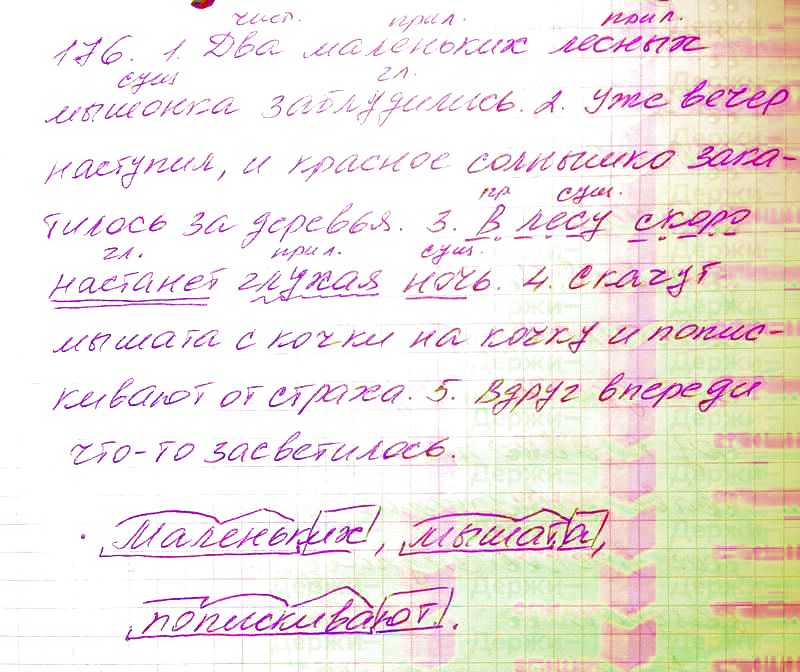 числ. прил. прил.
176. 1. Два маленьких лесных
сущ гл.
мышонка заблудились. 2. Уже вечер
наступил, и красное солнышко зака-
пр сущ.
тилось за деревья. 3. В лесу скоро
гл. прил. сущ.
настанет глухая ночь. 4. Скачут
мышата с кочки на кочку и попис-
кивают от страха. 5. Вдруг впереди
что-то засветилось.
Маленьких, мышата,
попискивают.